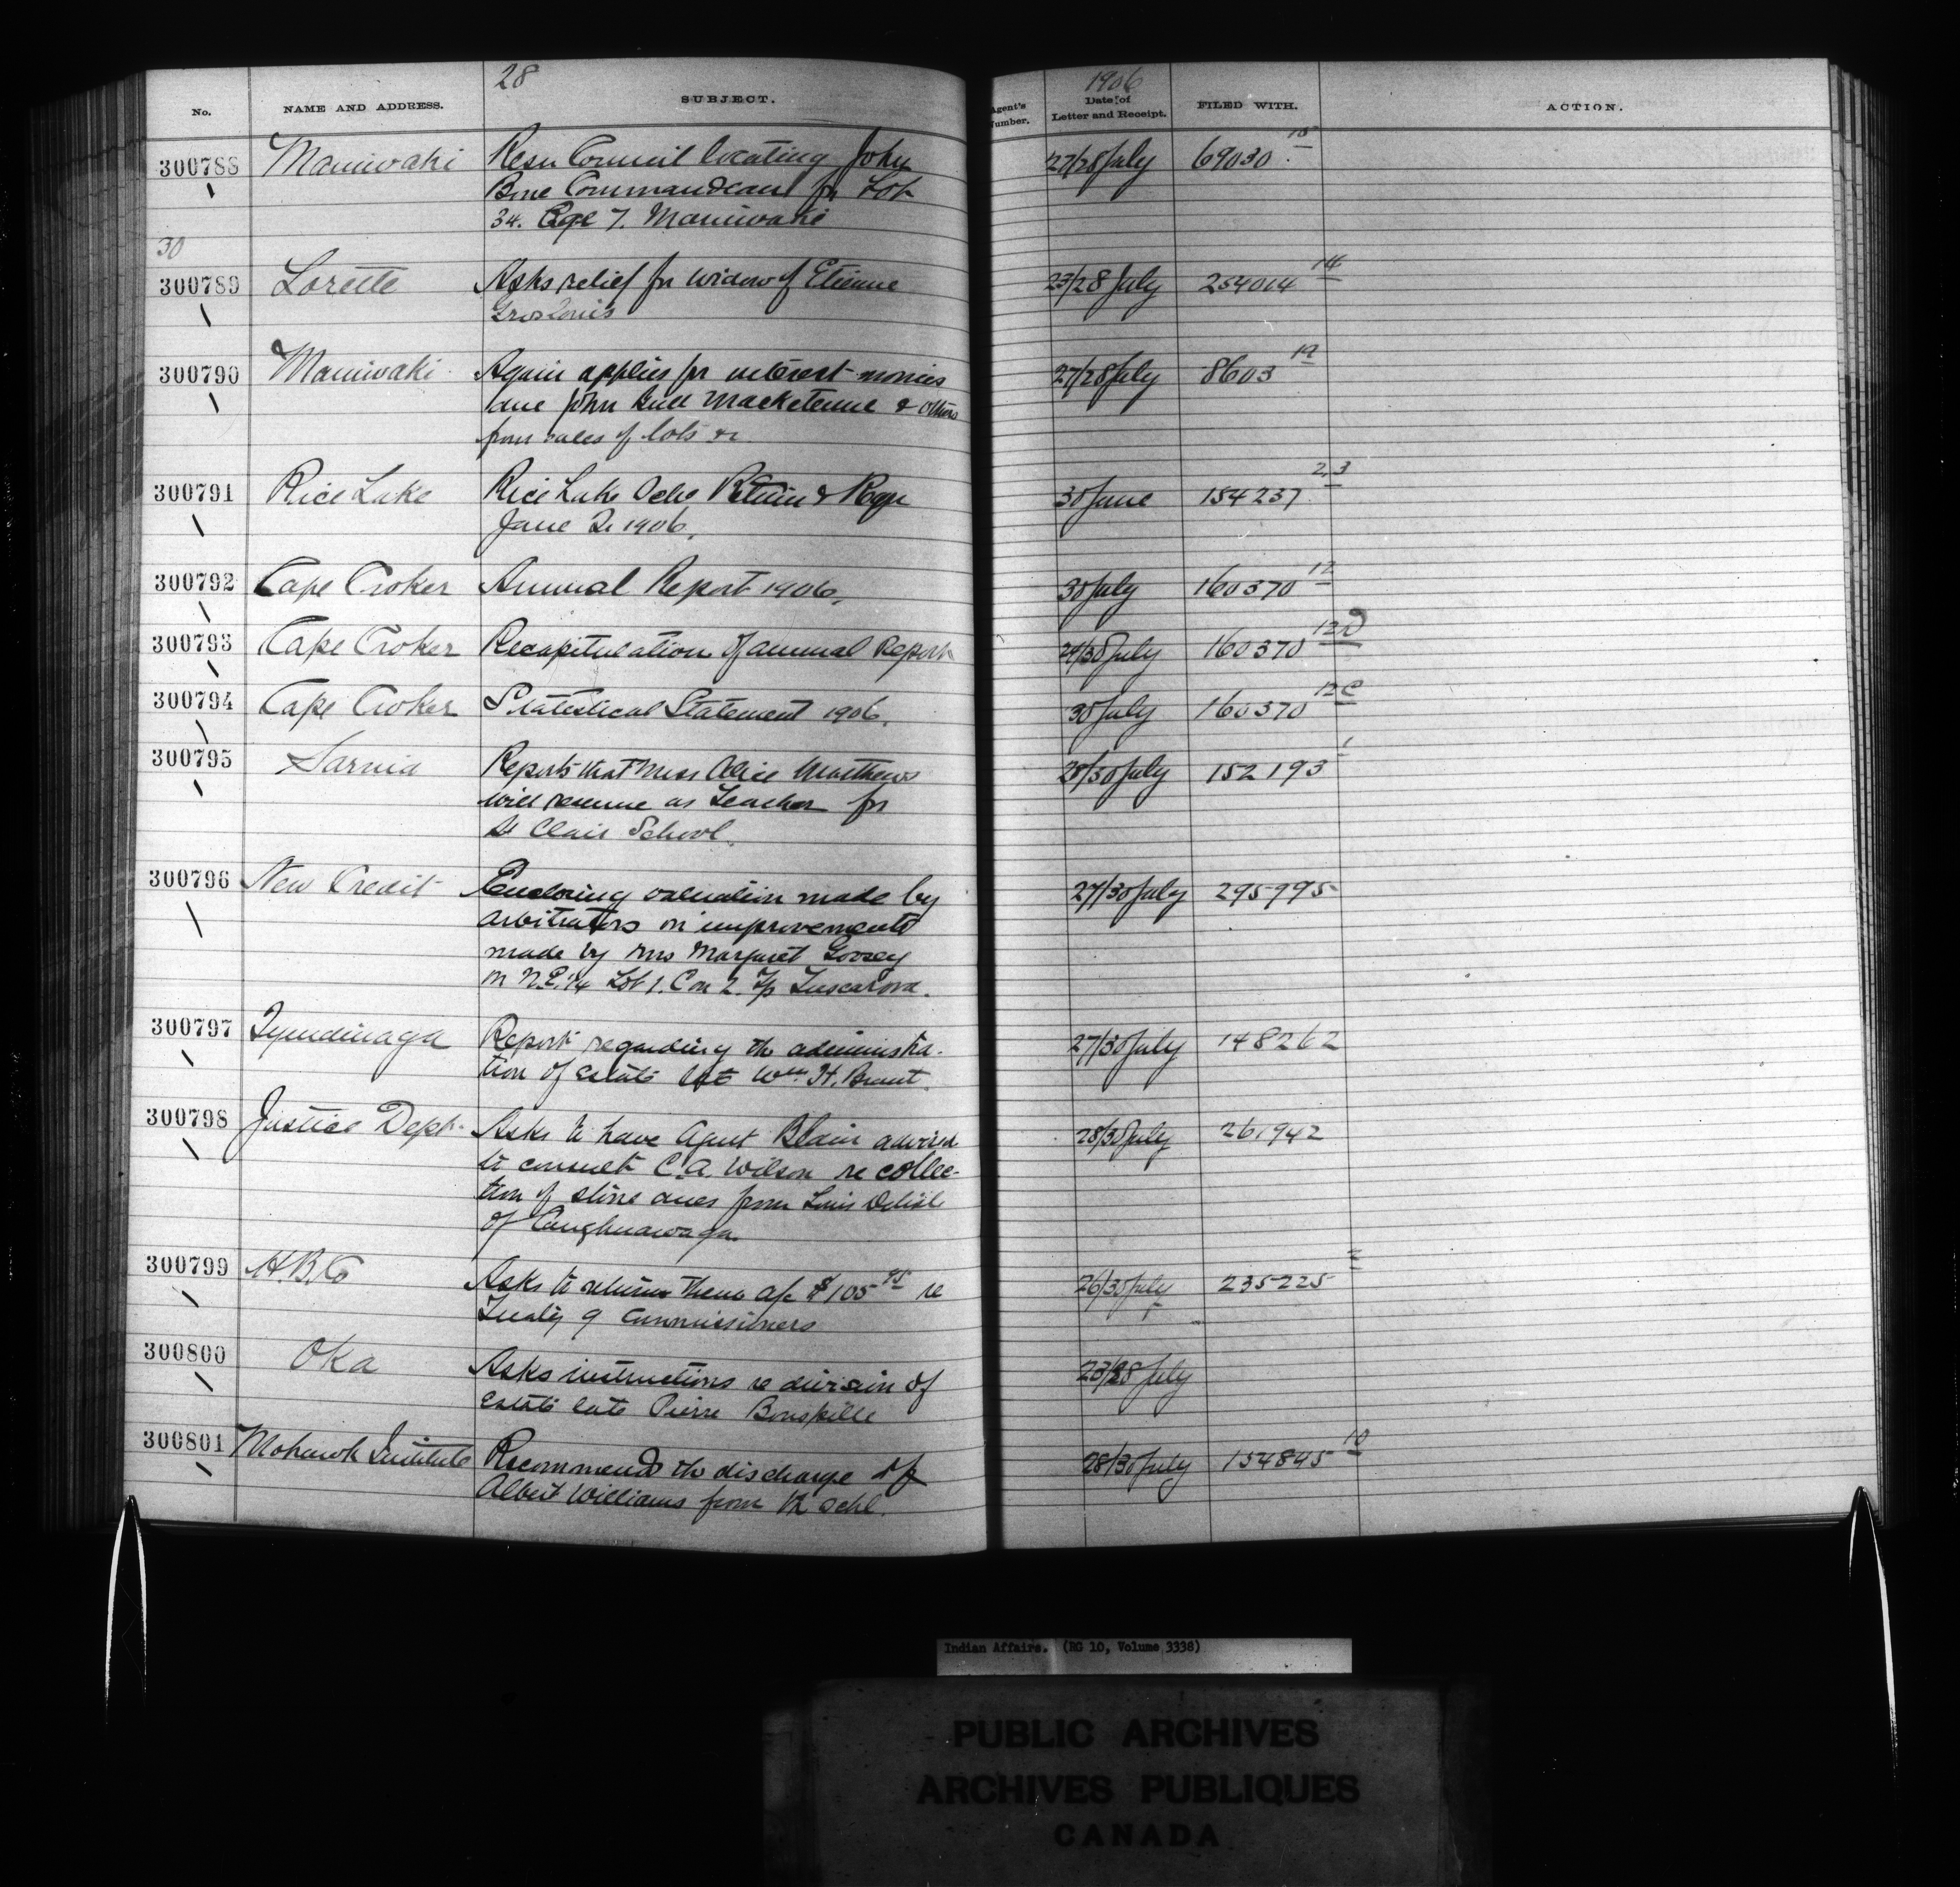 28
1906
No. NAME AND ADDRESS. SUBJECT. Agent's Number. Date of Letter and Receipt. FILED WITH. ACTION.
300788 Maniwaki Resn Council locating John 27/28 July 69030 15
Bine Commandeau for Lot
34. Rge 7. Maniwaki
30
300789 Lorette Asks relief for widow of Etienne 23/28 July 254014 14
Gros Louis
300790 Maniwaki Again applies for interest monies 27/28 July 8603 19
due John Bull Macketenne & others
from sales of lots &c
300791 Rice Lake Rice Lake Schl Return & Reqn 30 June 154237 2,3
June Qr 1906.
300792 Cape Croker Annual Report 1906. 30 July 160370 12
300793 Cape Croker Recapitulation of annual Report 29/30 July 160370 12D
300794 Cape Croker Statistical Statement 1906. 30 July 160370 12C
300795 Sarnia Reports that Miss Alice Matthews 28/30 July 152193 1
will resume as Teacher for
St Clair School.
300796 New Credit Enclosing valuation made by 27/30 July 295995
arbitrators on improvements
made by Mrs Margaret Goosey
on N.E. 1/4 Lot 1. Con 2. Tp Tuscarora.
300797 Tyendinaga Report regarding the administra- 27/30 July 148262
tion of estate late Wm. H. Brant.
300798 Justice Dept. Asks to have Agent Blain advised 28/30 July 261942
to consult C.A. Wilson re collec-
tion of stone dues from Louis Delisle
of Caughnawaga.
300799 H.B.Co Asks to return them a/c $105 95 re 26/30 July 235225
Treaty 9 Commissioners
300800 Oka Asks instructions re division of 23/28 July
estate late Pierre Bonspille
300801 Mohawk Institute Recommends the discharge of 28/30 July 154845 10
Albert Williams from the schl.
Indian Affairs. (RG 10, Volume 3338)
PUBLIC ARCHIVES
ARCHIVES PUBLIQUES
CANADA